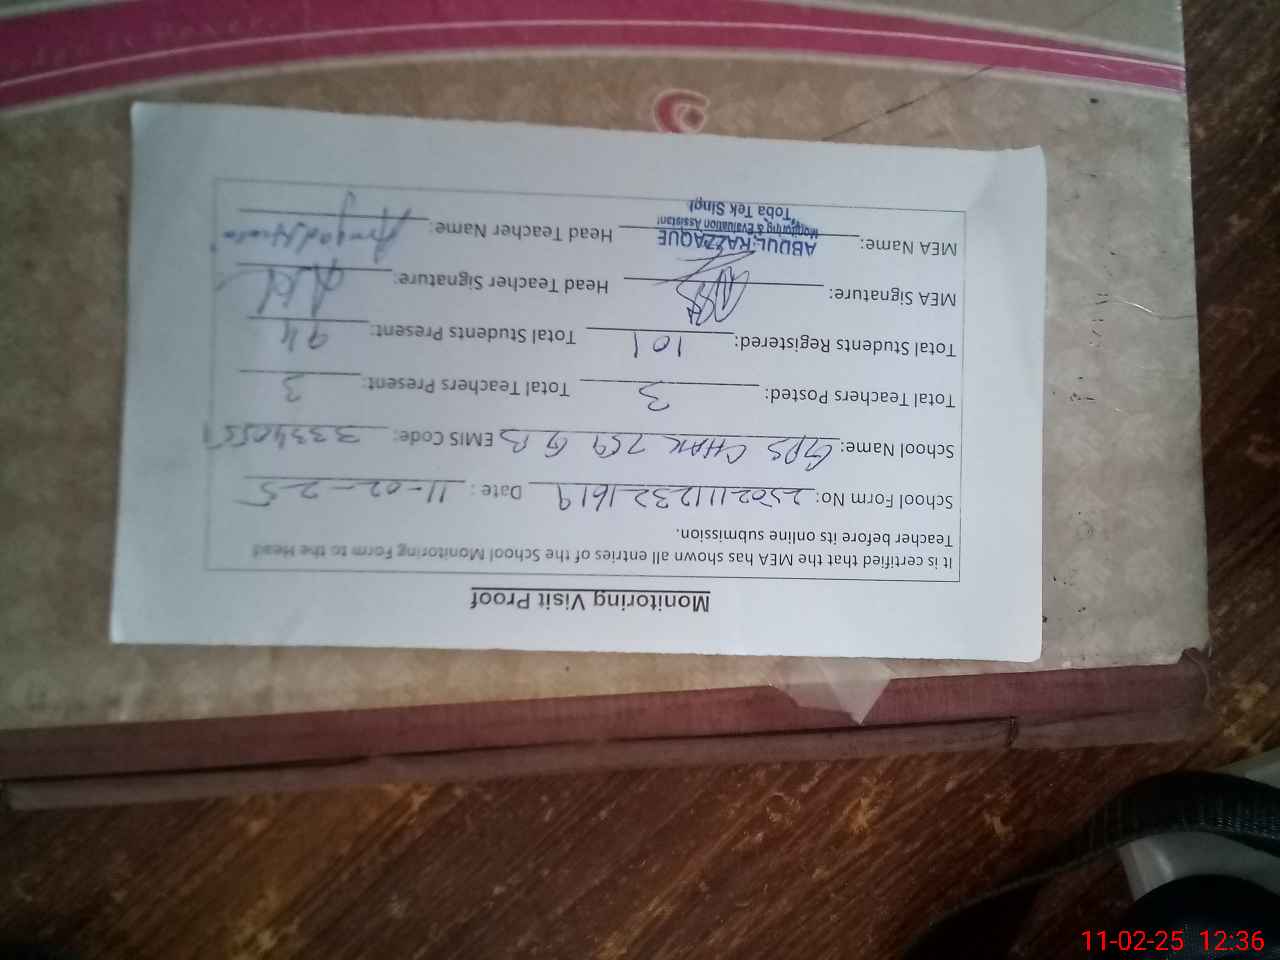 Monitoring Visit Proof
It is certified that the MEA has shown all entries of the School Monitoring Form to the Head
Teacher before its online submission.
School Form No: 25021112321619 Date: 11-02-25
School Name: GPS CHAK 759 GB EMIS Code: 33340559
Total Teachers Posted: 3 Total Teachers Present: 3
Total Students Registered: 101 Total Students Present: 94
MEA Signature: Head Teacher Signature:
MEA Name: ABDUL RAZZAQUE Head Teacher Name: Amjad
Monitoring & Evaluation Assistant
Toba Tek Singh
11-02-25 12:36